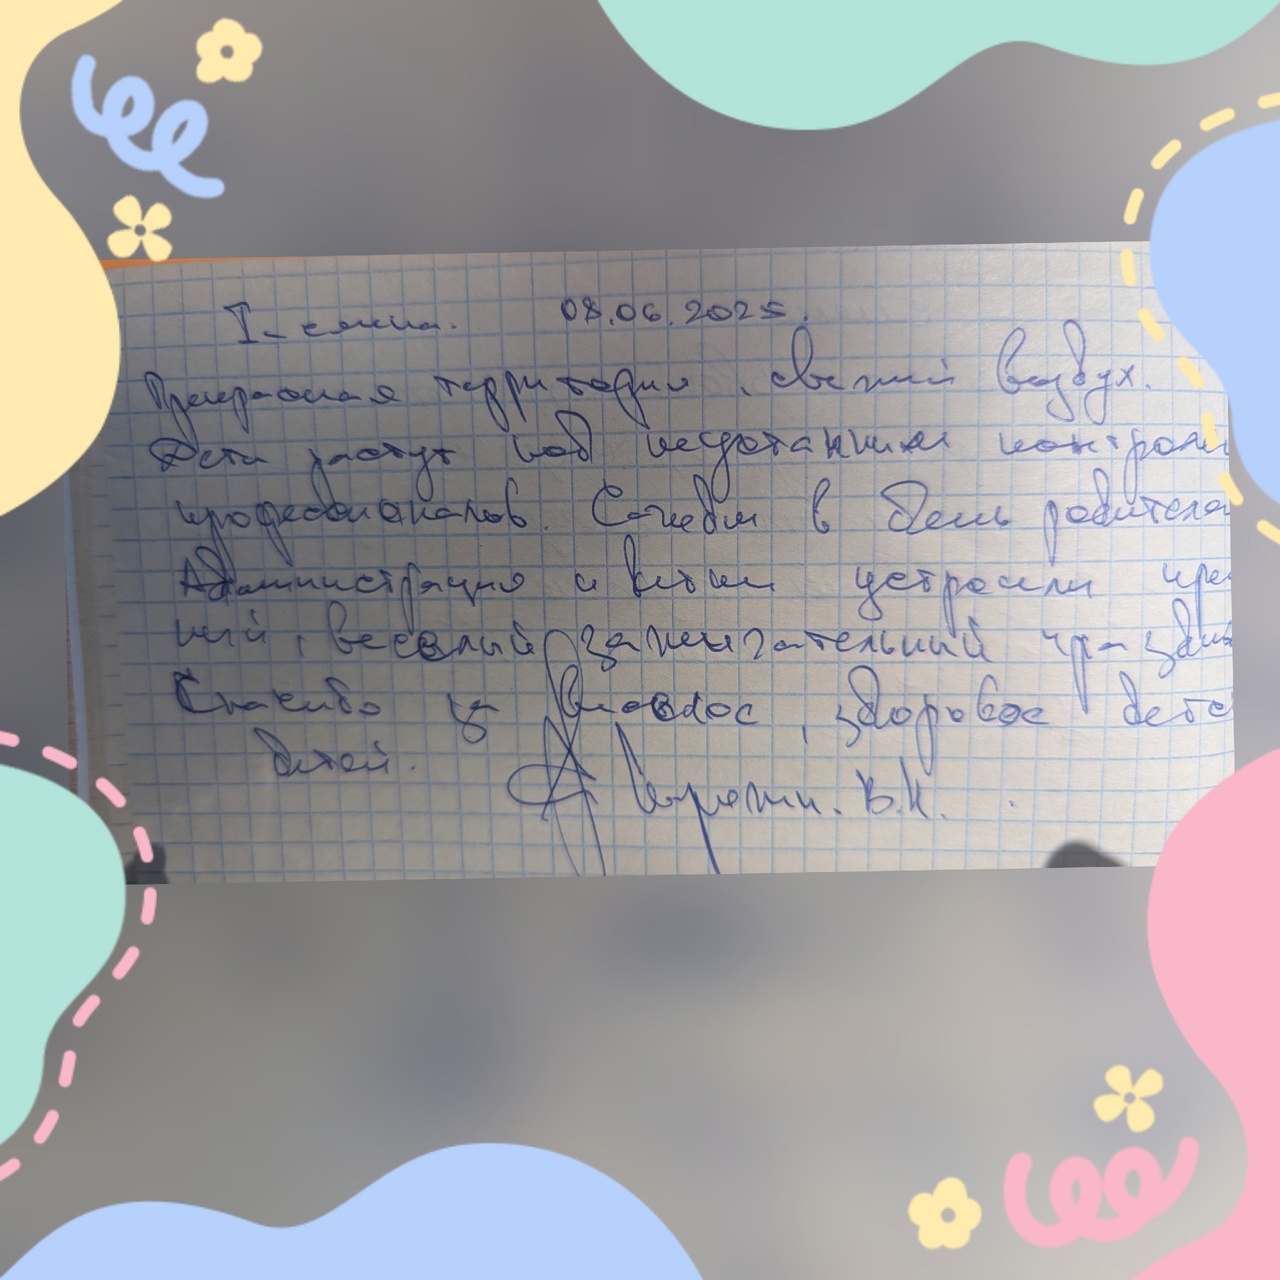 I-смена. 08.06.2025.
Прекрасная территория, свежий воздух.
Дети растут под неустанным контрол
профессионалов. Сегодня в день родителя
Администрация и устроили пре
ный, веселый, зажигательный праздник
Спасибо за , здоровое детс
детей.
В.Н.